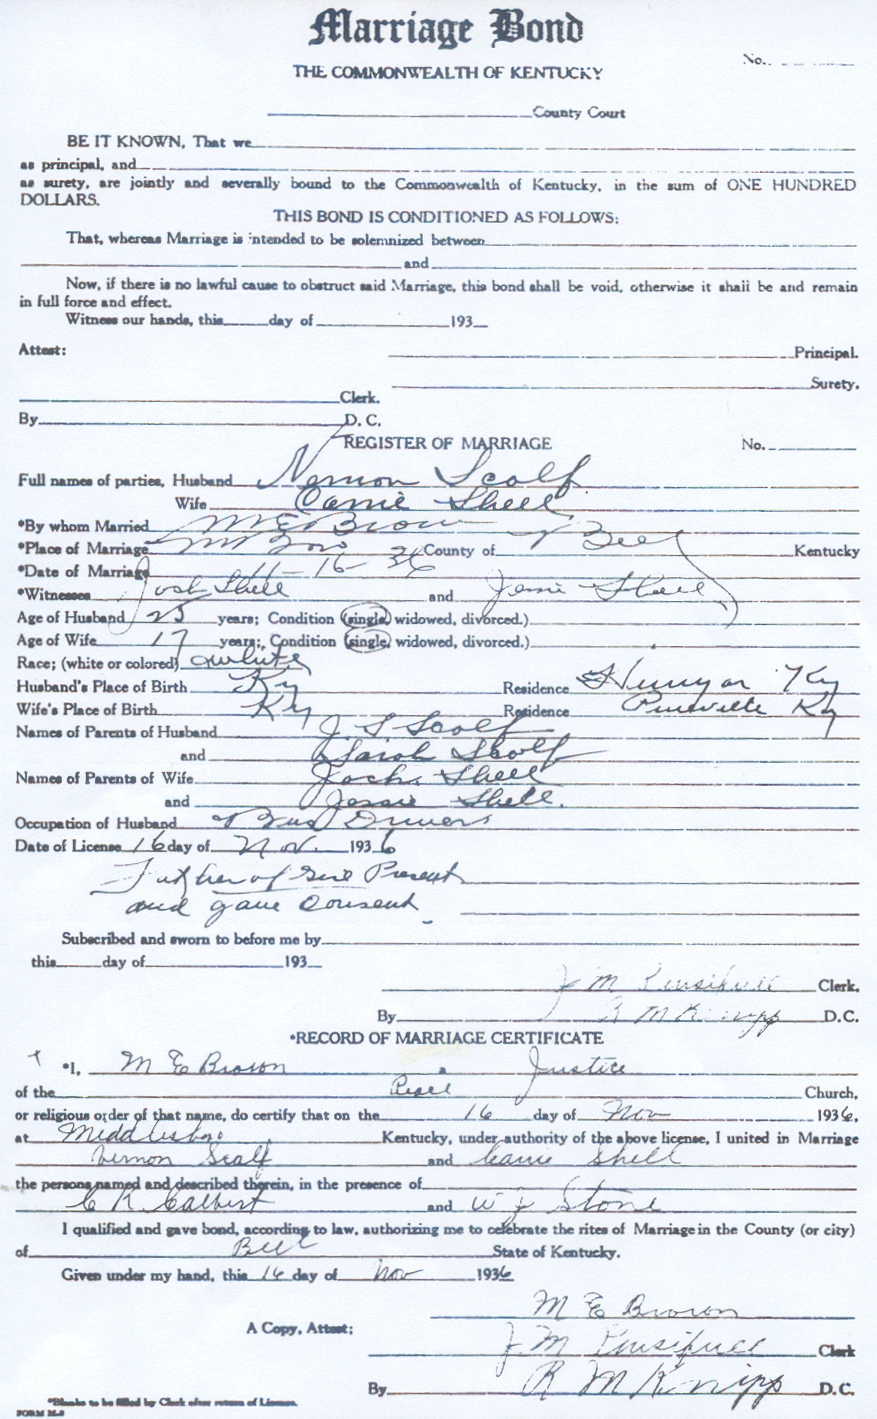 Marriage Bond
No.
THE COMMONWEALTH OF KENTUCKY
County Court
BE IT KNOWN, That we
as principal, and
as surety, are jointly and severally bound to the Commonwealth of Kentucky, in the sum of ONE HUNDRED
DOLLARS.
THIS BOND IS CONDITIONED AS FOLLOWS:
That, whereas Marriage is intended to be solemnized between
and
Now, if there is no lawful cause to obstruct said Marriage, this bond shall be void, otherwise it shall be and remain
in full force and effect.
Witness our hands, this day of 193
Attest: Principal.
Surety.
Clerk.
By D. C.
REGISTER OF MARRIAGE No.
Full names of parties, Husband Vernon Scalf
Wife Carrie Shell
*By whom Married M E Brown
*Place of Marriage M Boro County of Bell Kentucky
*Date of Marriage 11-16-36
*Witnesses Josh Shell and Jessie Shell
Age of Husband 25 years; Condition (single, widowed, divorced.)
Age of Wife 17 years; Condition (single, widowed, divorced.)
Race; (white or colored) white
Husband's Place of Birth Ky Residence Ky
Wife's Place of Birth Ky Residence Pineville Ky
Names of Parents of Husband J. S Scalf
and Sarah Scalf
Names of Parents of Wife Shell
and Jessie Shell.
Occupation of Husband Bus Driver
Date of License 16 day of Nov. 1936
Father of Girl Present
and gave consent
Subscribed and sworn to before me by
this day of 193
J M Pursifull Clerk.
By R M Knipp D.C.
*RECORD OF MARRIAGE CERTIFICATE
*I, M E Brown a Justice
of the Peace Church,
or religious order of that name, do certify that on the 16 day of Nov 1936,
at Middlesboro Kentucky, under authority of the above license, I united in Marriage
Vernon Scalf and Carrie Shell
the persons named and described therein, in the presence of
C R Calbert and W J Stone
I qualified and gave bond, according to law, authorizing me to celebrate the rites of Marriage in the County (or city)
of Bell State of Kentucky.
Given under my hand, this 16 day of Nov 1936
M E Brown
A Copy, Attest;
J. M Pursifull Clerk
By R M Knipp D.C.
*Blanks to be filled by Clerk after return of License.